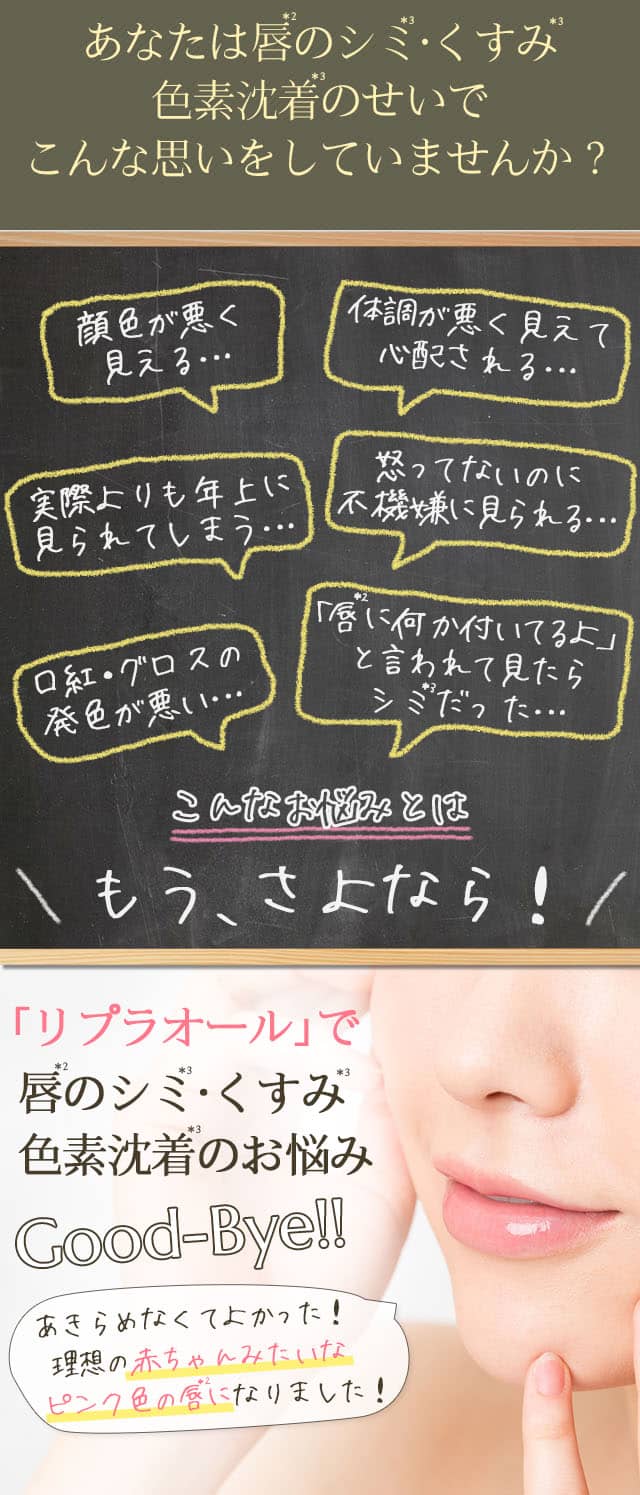 あなたは唇*2のシミ*3・くすみ*3
色素沈着*3のせいで
こんな思いをしていませんか？
顔色が悪く
見える…
体調が悪く見えて
心配される…
実際よりも年上に
見られてしまう…
怒ってないのに
不機嫌に見られる…
口紅・グロスの
発色が悪い…
「唇*2に何か付いてるよ」
と言われて見たら
シミ*3だった…
こんなお悩みとは
\ もう、さよなら！ /
「リプラオール」で
唇*2のシミ*3・くすみ*3
色素沈着*3のお悩み
Good-Bye!!
あきらめなくてよかった！
理想の赤ちゃんみたいな
ピンク色の唇*2になりました！